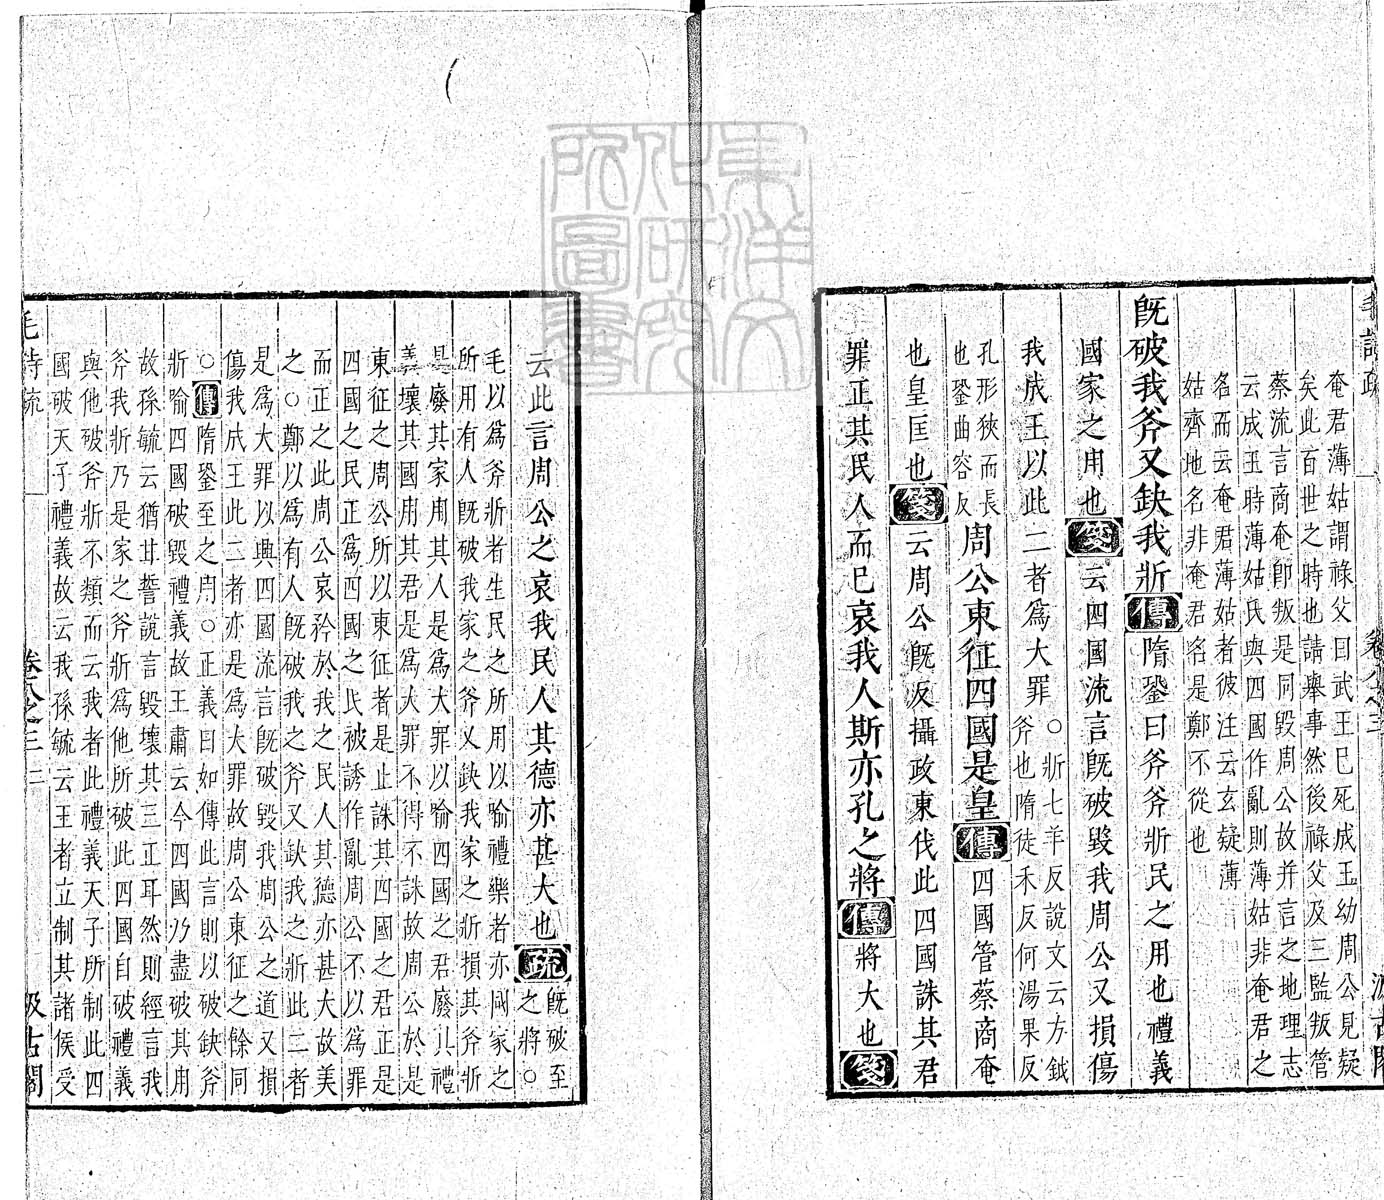 奄君薄姑謂祿父曰武王已死成王幼周公見疑
矣此百世之時也請舉事然後祿父及三監叛管
蔡流言商奄卽叛是同毀周公故并言之地理志
云成王時薄姑氏與四國作亂則薄姑非奄君之
名而云奄君薄姑者彼注云玄疑薄
姑齊地名非奄君名是鄭不從也
旣破我斧又缺我斨傳隋銎曰斧斧斨民之用也禮義
國家之用也箋云四國流言旣破毀我周公又損傷
我成王以此二者爲大罪○斨七羊反說文云方銊
斧也隋徒禾反何湯果反
孔形狹而長
也銎曲容反周公東征四國是皇傳四國管蔡商奄
也皇匡也箋云周公旣反攝政東伐此四國誅其君
罪正其民人而已哀我人斯亦孔之將傳將大也箋
云此言周公之哀我民人其德亦甚大也疏旣破至
之將○
毛以爲斧斨者生民之所用以喻禮樂者亦國家之
所用有人旣破我家之斧又缺我家之斨損其斧斨
是廢其家用其人是爲大罪以喻四國之君廢其禮
義壞其國用其君是爲大罪不得不誅故周公於是
東征之周公所以東征者是止誅其四國之君正是
四國之民正爲四國之民被誘作亂周公不以爲罪
而正之此周公哀矜於我之民人其德亦甚大故美
之○鄭以爲有人旣破我之斧又缺我之斨此二者
是爲大罪以興四國流言旣破毀我周公之道又損
傷我成王此二者亦是爲大罪故周公東征之餘同
○傳隋銎至之用○正義曰如傳此言則以破缺斧
斨喻四國破毀禮義故王肅云今四國乃盡破其用
故孫毓云猶甘誓說言毀壞其三正耳然則經言我
斧我斨乃是家之斧斨爲他所破此四國自破禮義
與他破斧斨不類而云我者此禮義天子所制此四
國破天子禮義故云我孫毓云王者立制其諸侯受
毛詩疏
卷八之三
二
汲古閣
東洋文
化研究
所圖書